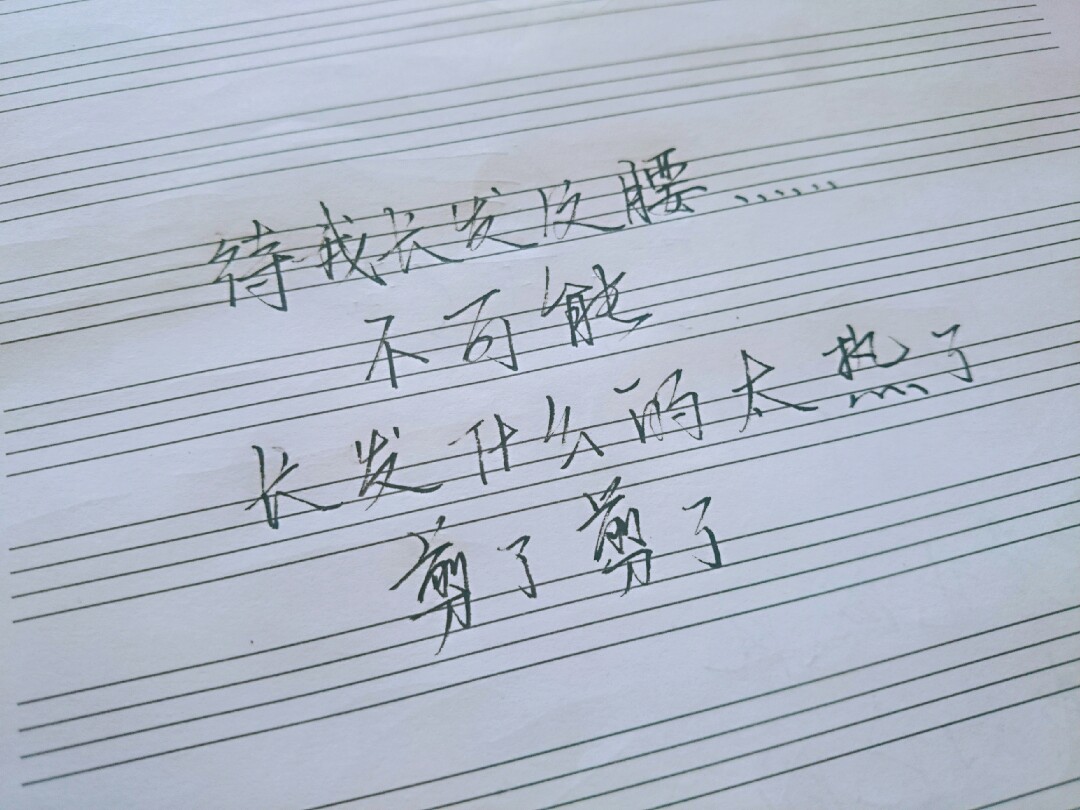 待我长发及腰……
不可能
长发什么的太热了
剪了剪了